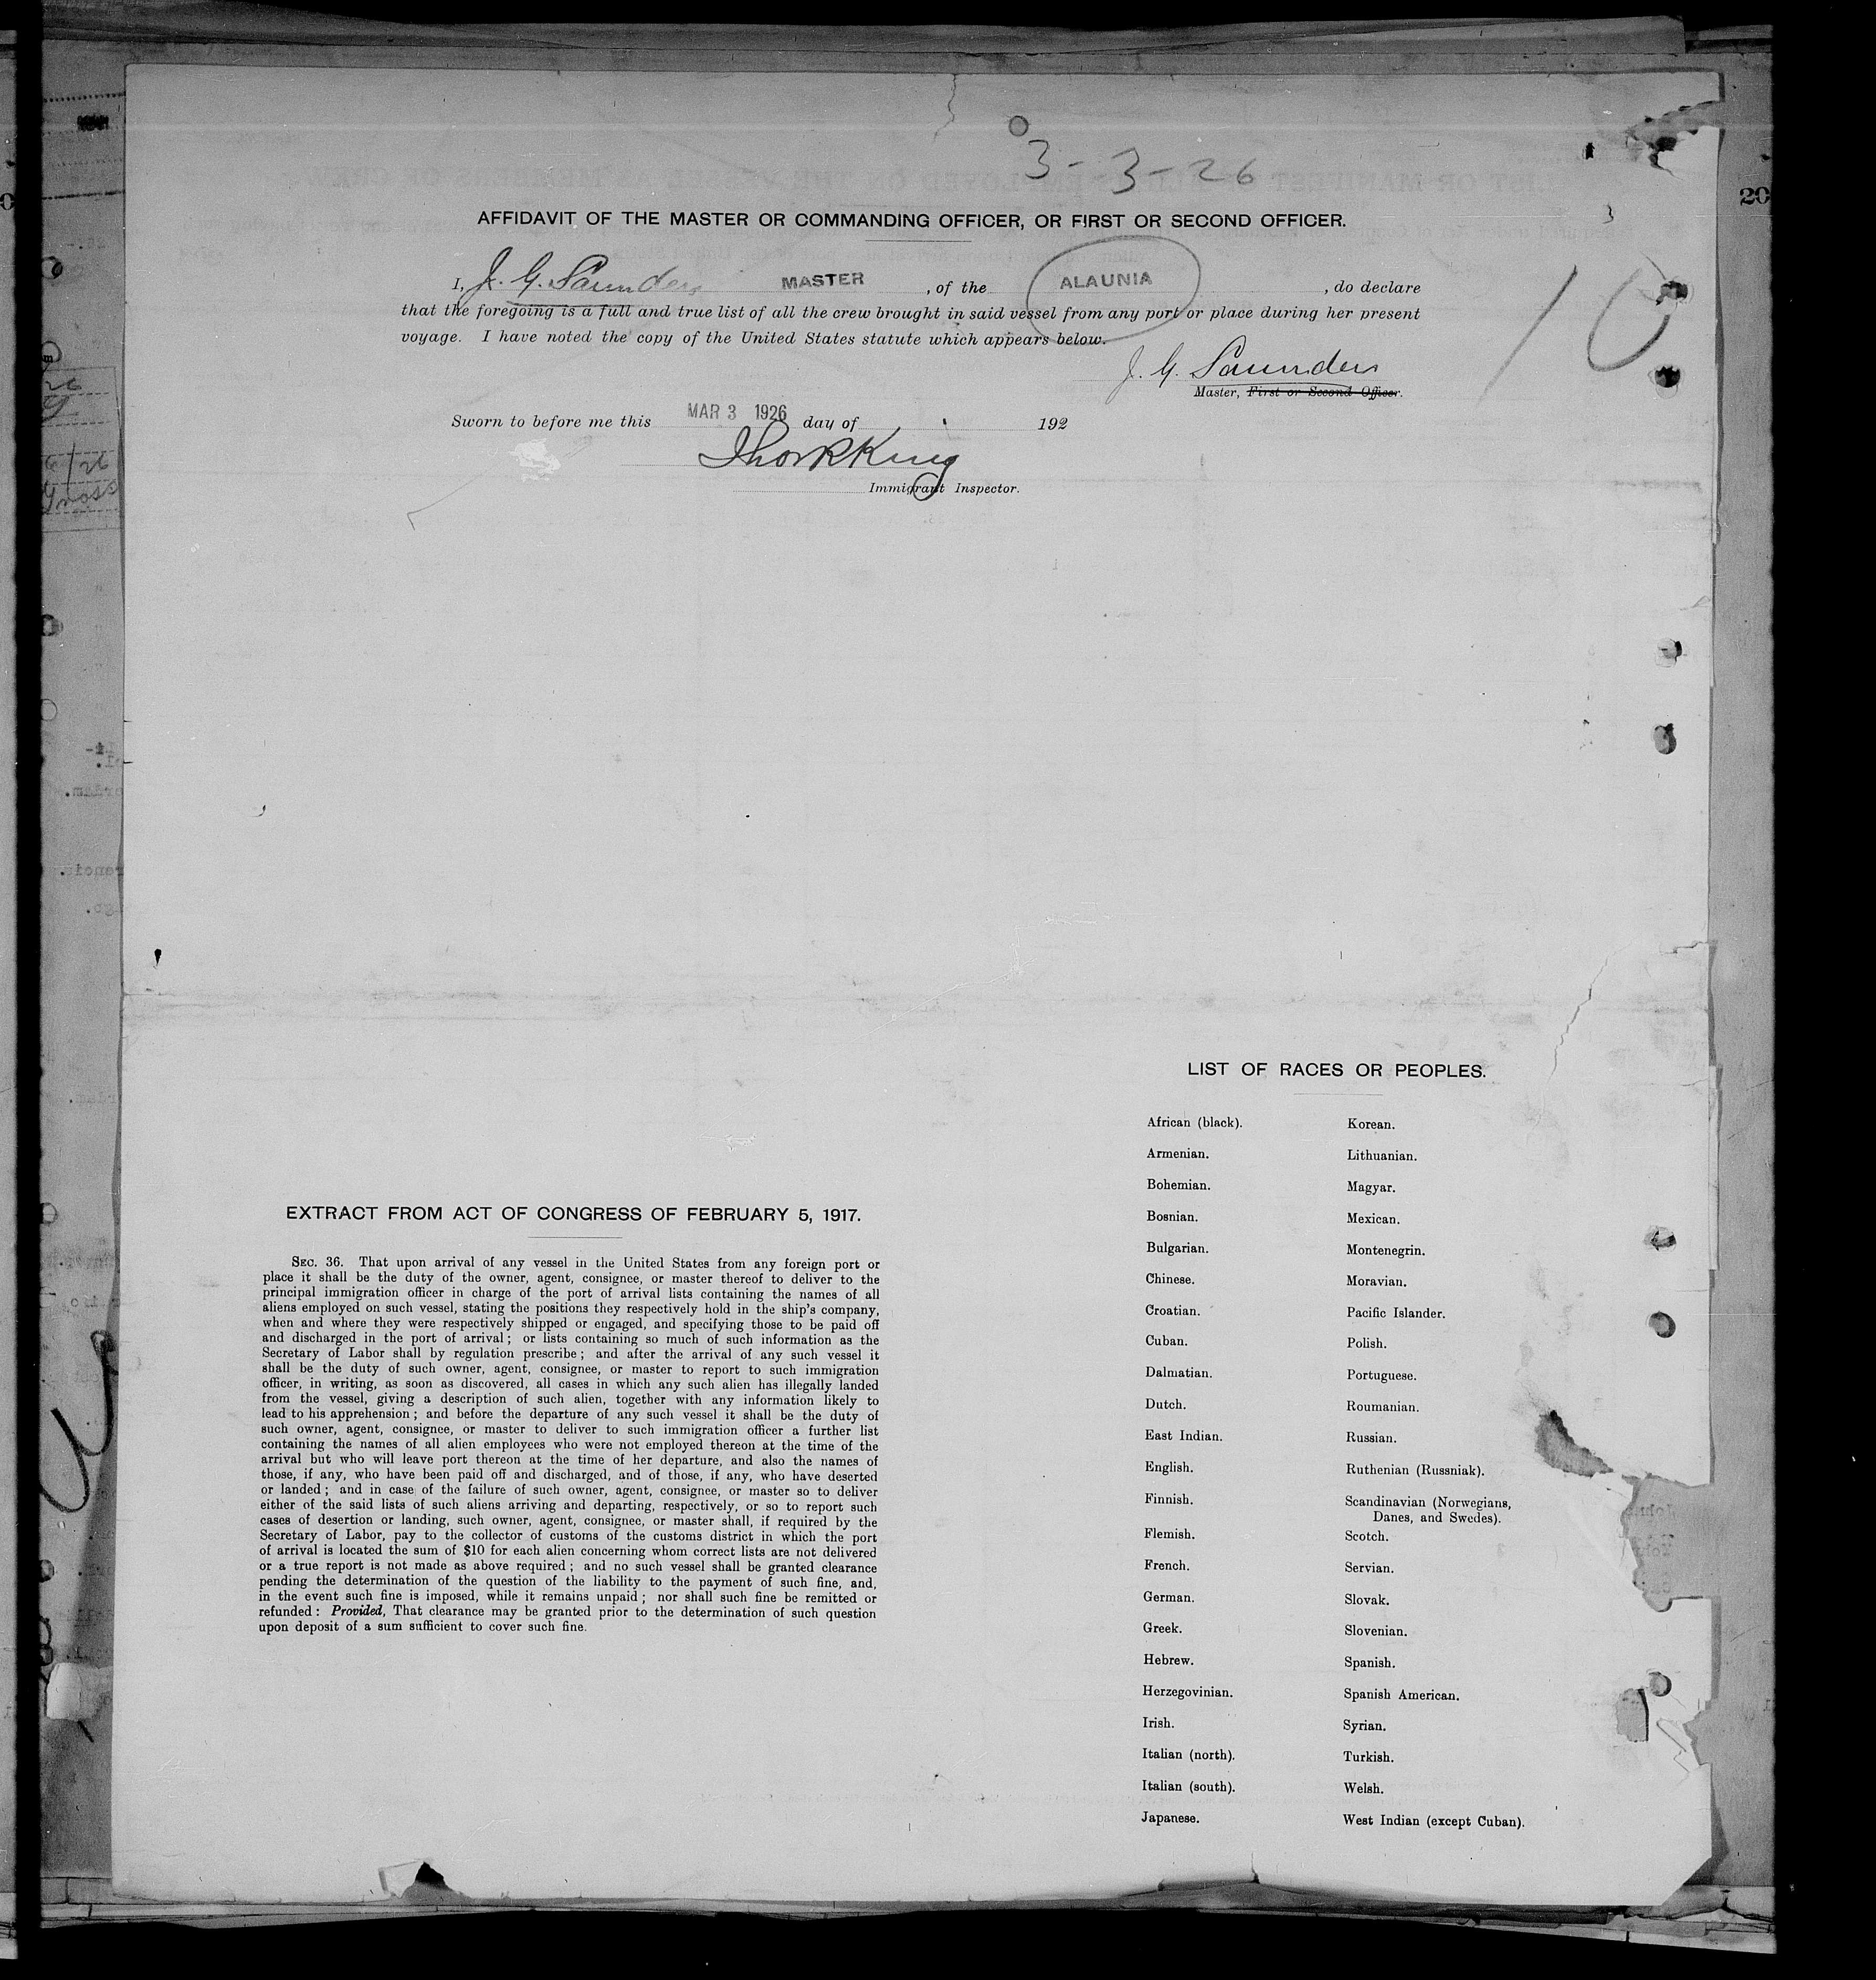 3-3-26
AFFIDAVIT OF THE MASTER OR COMMANDING OFFICER, OR FIRST OR SECOND OFFICER.
I, J. G. Saunders MASTER, of the ALAUNIA, do declare
that the foregoing is a full and true list of all the crew brought in said vessel from any port or place during her present
voyage. I have noted the copy of the United States statute which appears below.
J. G. Saunders
Master, First or Second Officer.
Sworn to before me this MAR 3 1926 day of 192
Immigrant Inspector.
LIST OF RACES OR PEOPLES.
African (black). Korean.
Armenian. Lithuanian.
Bohemian. Magyar.
Bosnian. Mexican.
Bulgarian. Montenegrin.
Chinese. Moravian.
Croatian. Pacific Islander.
Cuban. Polish.
Dalmatian. Portuguese.
Dutch. Roumanian.
East Indian. Russian.
English. Ruthenian (Russniak).
Finnish. Scandinavian (Norwegians,
Danes, and Swedes).
Flemish. Scotch.
French. Servian.
German. Slovak.
Greek. Slovenian.
Hebrew. Spanish.
Herzegovinian. Spanish American.
Irish. Syrian.
Italian (north). Turkish.
Italian (south). Welsh.
Japanese. West Indian (except Cuban).
EXTRACT FROM ACT OF CONGRESS OF FEBRUARY 5, 1917.
SEC. 36. That upon arrival of any vessel in the United States from any foreign port or
place it shall be the duty of the owner, agent, consignee, or master thereof to deliver to the
principal immigration officer in charge of the port of arrival lists containing the names of all
aliens employed on such vessel, stating the positions they respectively hold in the ship's company,
when and where they were respectively shipped or engaged, and specifying those to be paid off
and discharged in the port of arrival; or lists containing so much of such information as the
Secretary of Labor shall by regulation prescribe; and after the arrival of any such vessel it
shall be the duty of such owner, agent, consignee, or master to report to such immigration
officer, in writing, as soon as discovered, all cases in which any such alien has illegally landed
from the vessel, giving a description of such alien, together with any information likely to
lead to his apprehension; and before the departure of any such vessel it shall be the duty of
such owner, agent, consignee, or master to deliver to such immigration officer a further list
containing the names of all alien employees who were not employed thereon at the time of the
arrival but who will leave port thereon at the time of her departure, and also the names of
those, if any, who have been paid off and discharged, and of those, if any, who have deserted
or landed; and in case of the failure of such owner, agent, consignee, or master so to deliver
either of the said lists of such aliens arriving and departing, respectively, or so to report such
cases of desertion or landing, such owner, agent, consignee, or master shall, if required by the
Secretary of Labor, pay to the collector of customs of the customs district in which the port
of arrival is located the sum of $10 for each alien concerning whom correct lists are not delivered
or a true report is not made as above required; and no such vessel shall be granted clearance
pending the determination of the question of the liability to the payment of such fine, and,
in the event such fine is imposed, while it remains unpaid; nor shall such fine be remitted or
refunded: Provided, That clearance may be granted prior to the determination of such question
upon deposit of a sum sufficient to cover such fine.